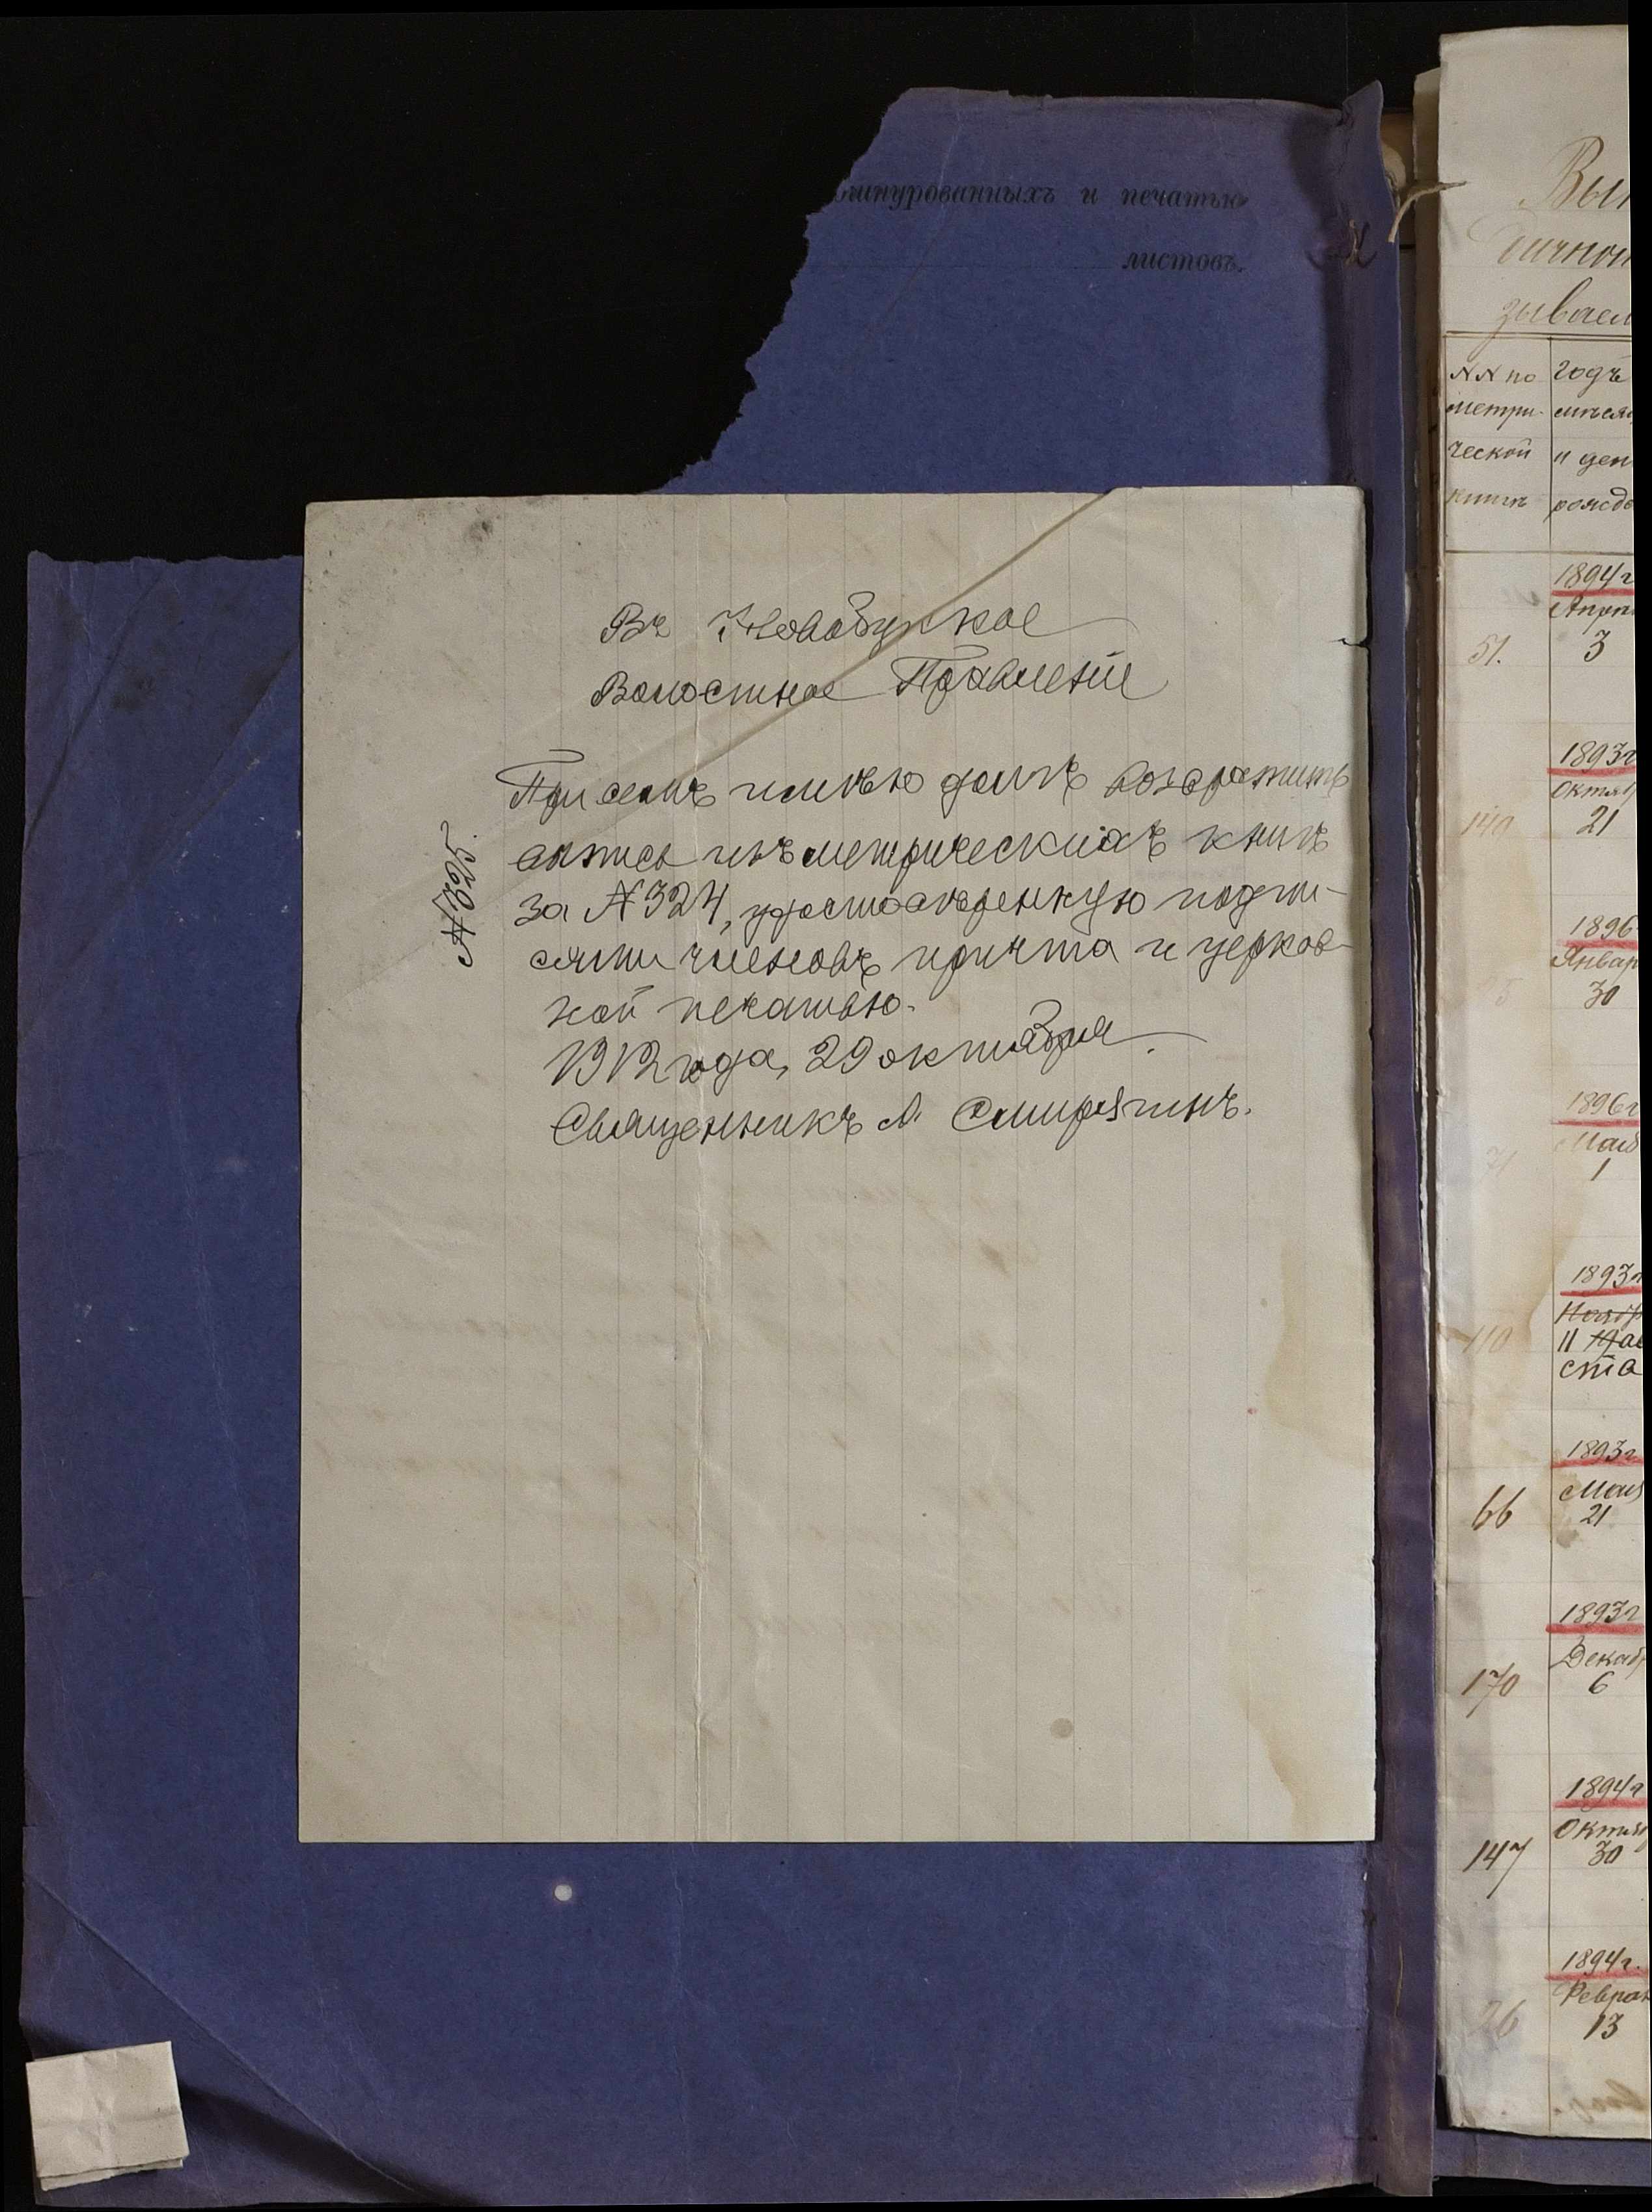 ошнурованныхъ и печатью
листовъ.
Въ Новобурское
Волостное Правленіе
№ 325.
При семъ имѣю долгъ возвратить
выпись изъ метрическихъ книгъ
за № 324, удостовѣренную подпи-
сями членовъ причта и церков-
ной печатью.
1912 года, 29 октября.
Священникъ А. Смирягинъ.
Вып
зывает
№№ по
метри-
ческой
книгѣ
годъ
мѣся
и ден
рожде
51.
1894 г
Апрѣ
3
140
1893 г
Октяб
21
1896
Январ
30
1896 г
Мая
1
110
1893 г
Нояб
11 Авг
ста
66
1893 г
Мая
21
170
1893 г
Декаб
6
147
1894 г
Октяб
30
26
1894 г.
Феврал
13